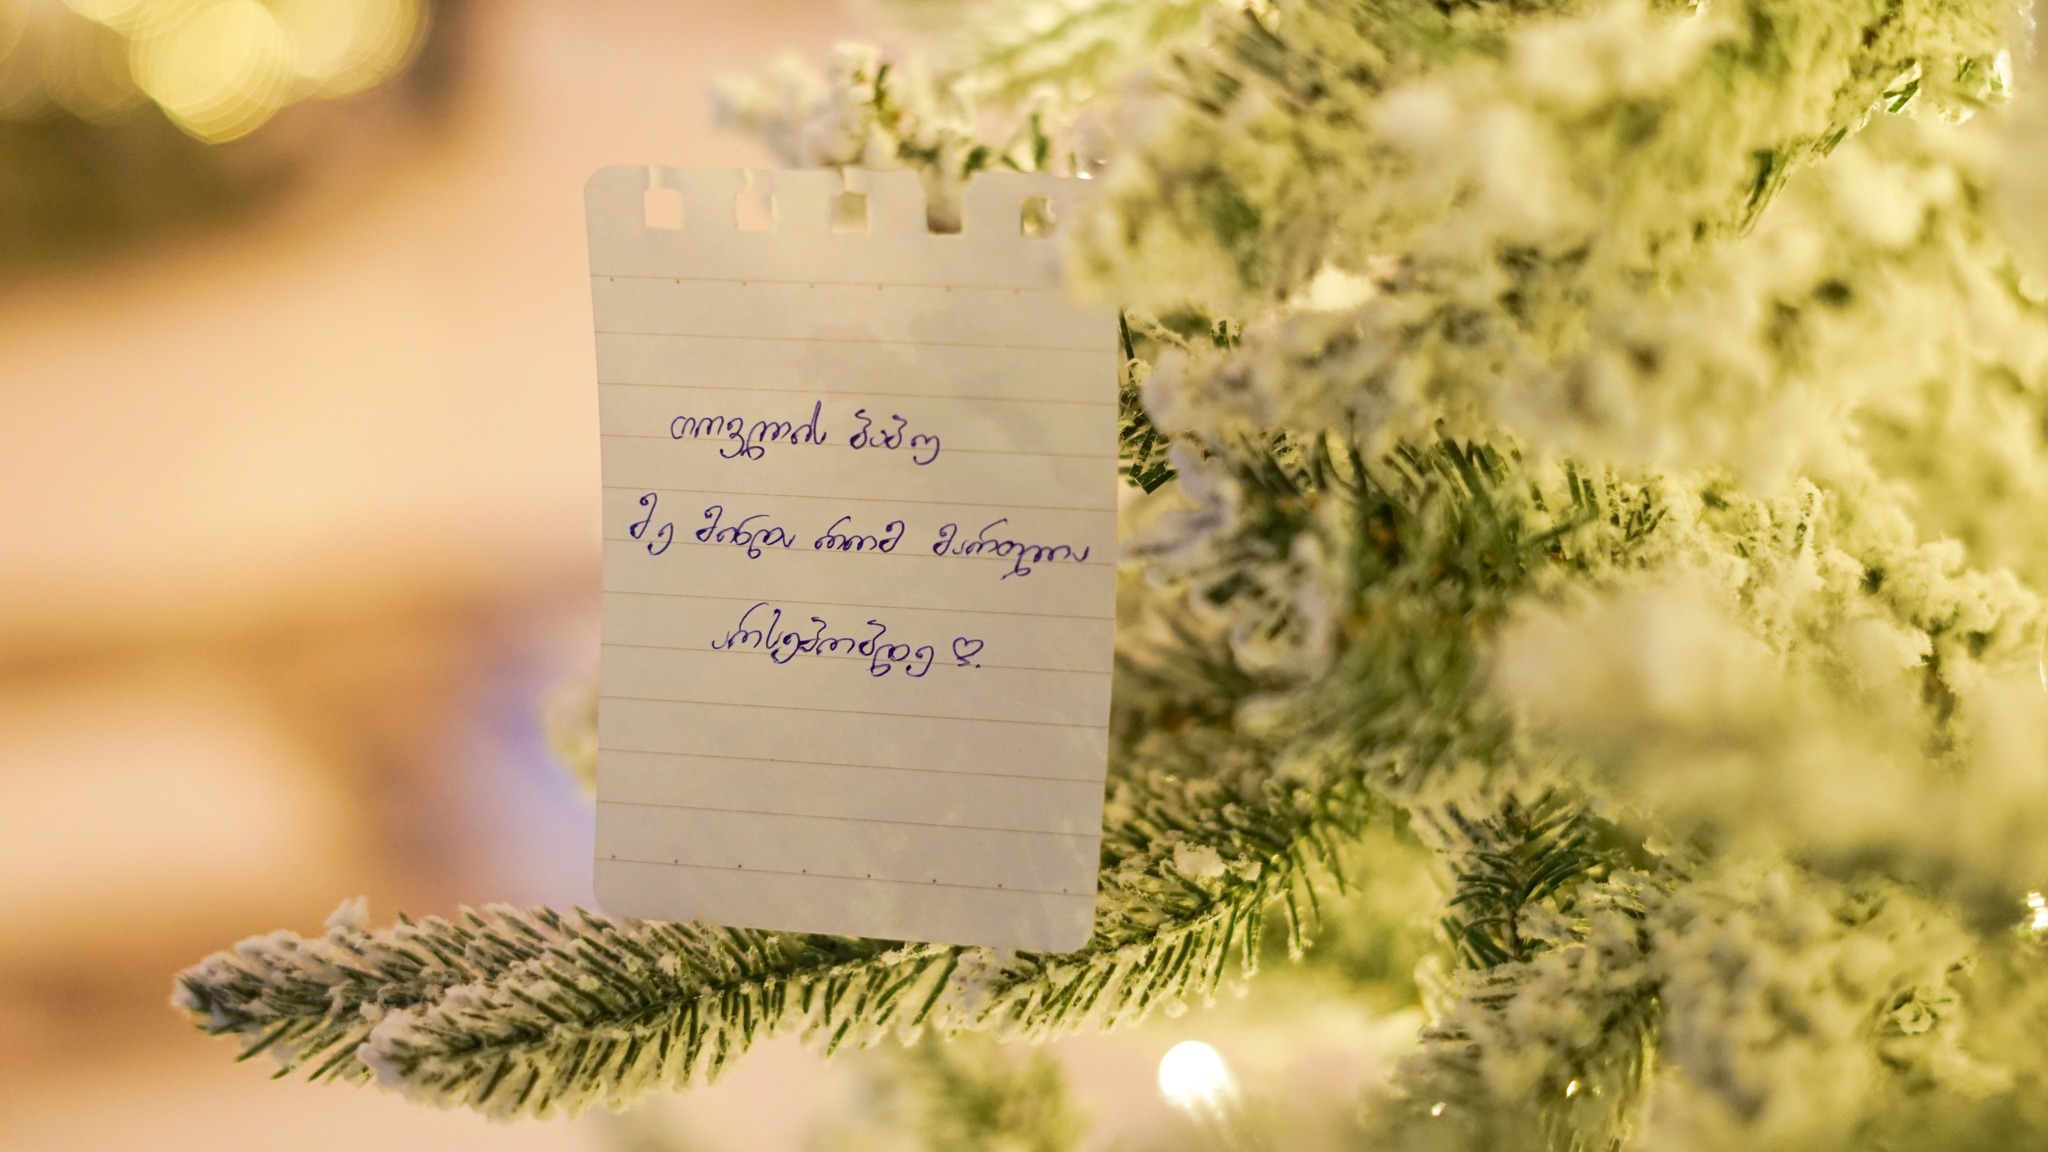 თოვლის ბაბუ
მე მინდა რომ მართლა
არსებობდე ♡.